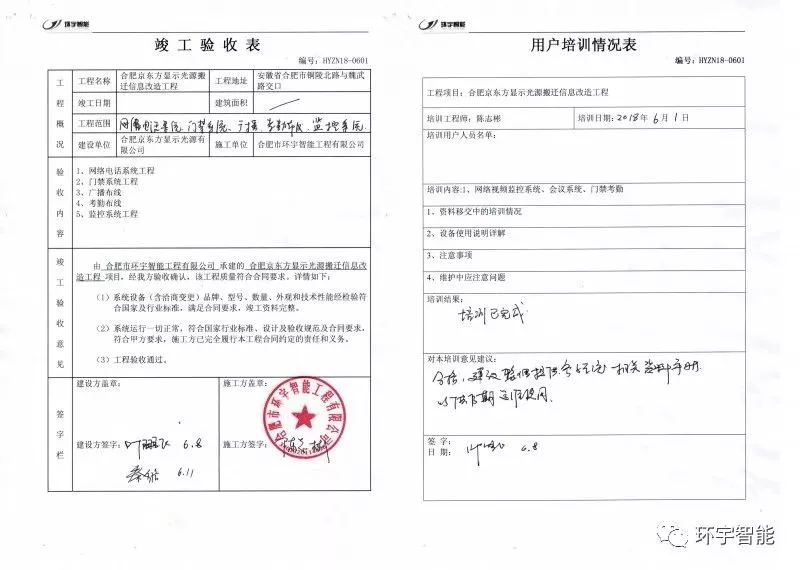 环宇智能
竣工验收表
编号：HYZN18-0601
工程概况
工程名称
合肥京东方显示光源搬
迁信息改造工程
工程地址
安徽省合肥市铜陵北路与魏武
路交口
竣工日期
建筑面积
工程范围
网络电话系统、门禁系统、广播、考勤布线、监控系统.
建设单位
合肥京东方显示光源有
限公司
施工单位
合肥市环宇智能工程有限公司
验收内容
1、网络电话系统工程
2、门禁系统工程
3、广播布线
4、考勤布线
5、监控系统工程
竣工验收意见
由 合肥市环宇智能工程有限公司 承建的 合肥京东方显示光源搬迁信息改
造工程 项目，经我方验收确认，该工程质量符合合同要求。详情如下：
（1）系统设备（含洽商变更）品牌、型号、数量、外观和技术性能经检验符
合国家及行业标准，满足合同要求，竣工资料完整。
（2）系统运行一切正常，符合国家行业标准、设计及验收规范及合同要求，
符合甲方要求，施工方已完全履行本工程合同约定的责任和义务。
（3）工程验收通过。
签字栏
建设方盖章：
建设方签字： 6.8
6.11
施工方盖章：
合肥市环宇智能工程有限公司
施工方签字：
环宇智能
用户培训情况表
编号：HYZN18-0601
工程项目：合肥京东方显示光源搬迁信息改造工程
培训工程师：陈志彬
培训日期：2018年6月1日
培训用户人员名单：
培训内容:1、网络视频监控系统、会议系统、门禁考勤
1、资料移交中的培训情况
2、设备使用说明详解
3、注意事项
4、维护中应注意问题
培训结果：
培训已完成
对本培训意见建议：
合格，建议 提供各系统相关资料手册.
以便后期 使用.
签 字：
日 期： 6.8
环宇智能